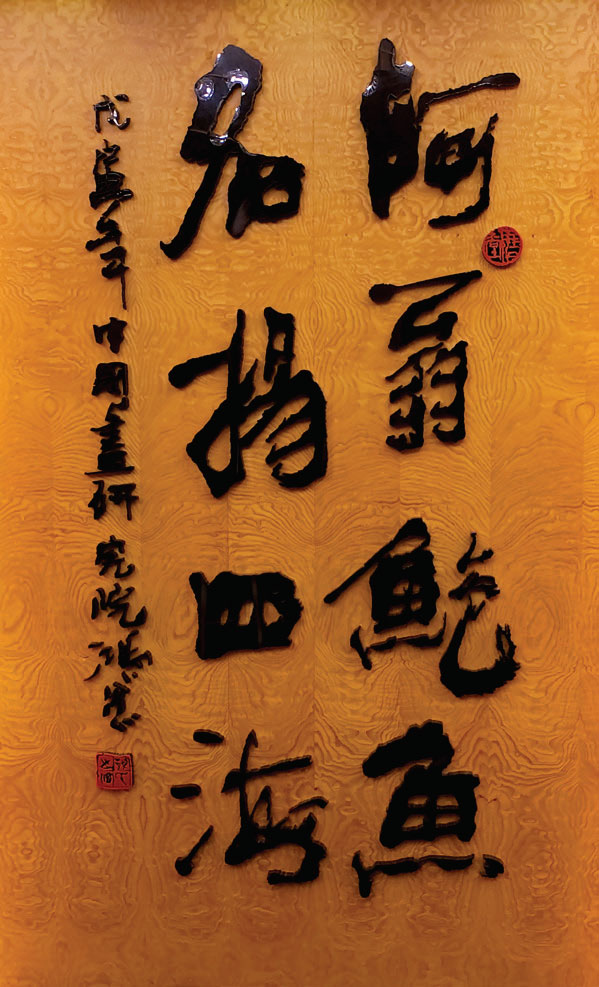 阿翁鲍鱼
名揚四海
戊寅年中国画研究院